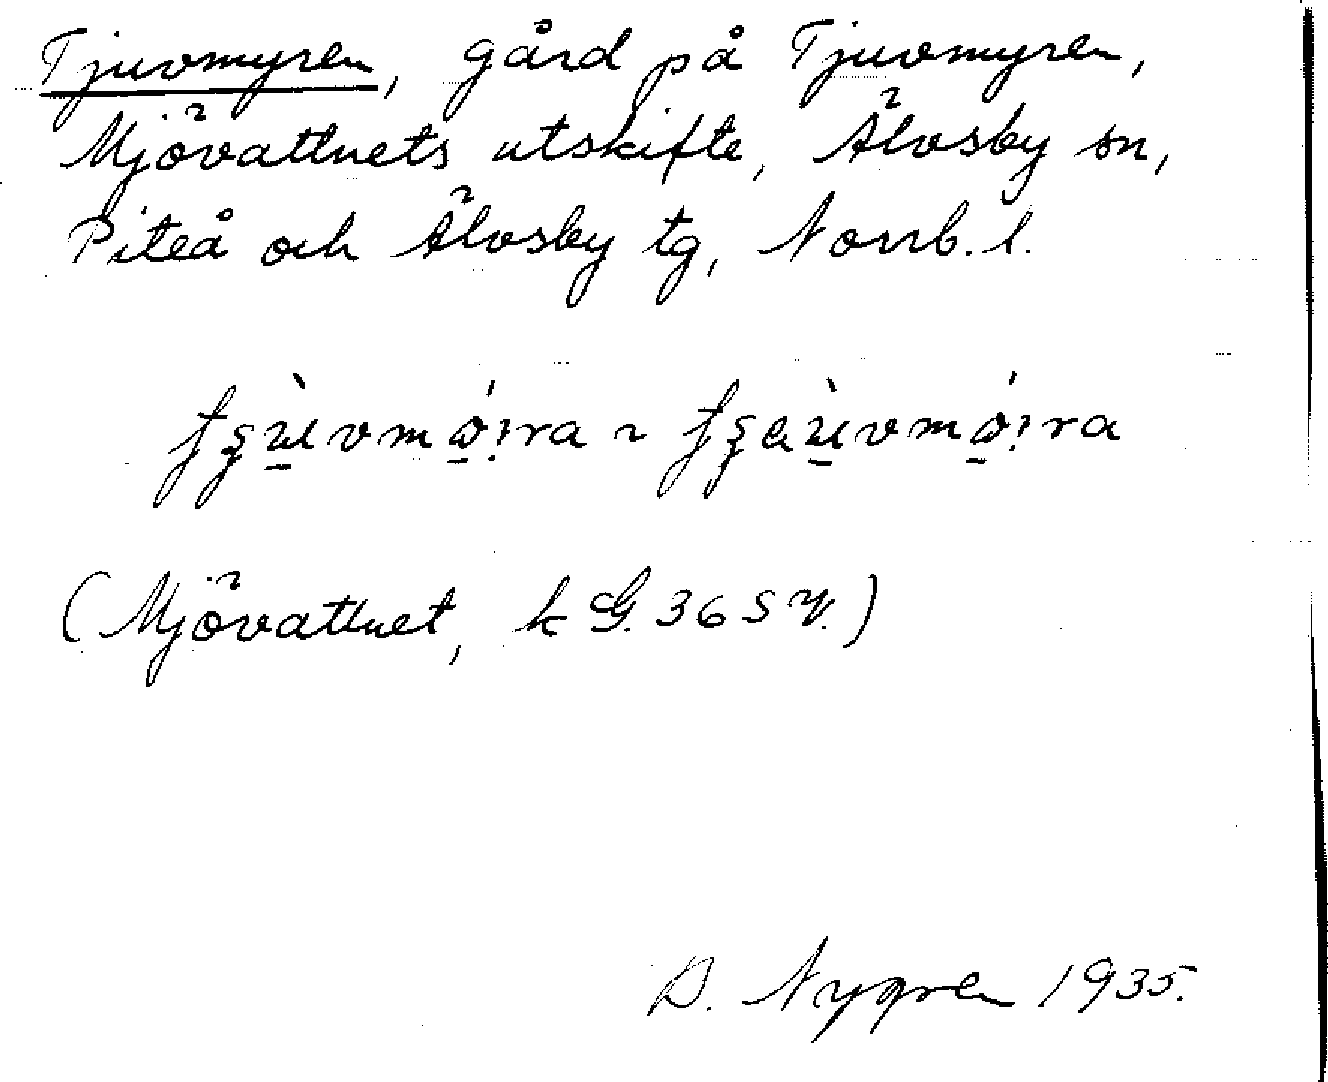 Tjuvmyren, gård på Tjuvmyren,
Mjövattnets utskifte, Älvsby sn,
Piteå och Älvsby tg, Norrb. l.
(Mjövattnet, k G. 36 S V.)
D. Nygren 1935.